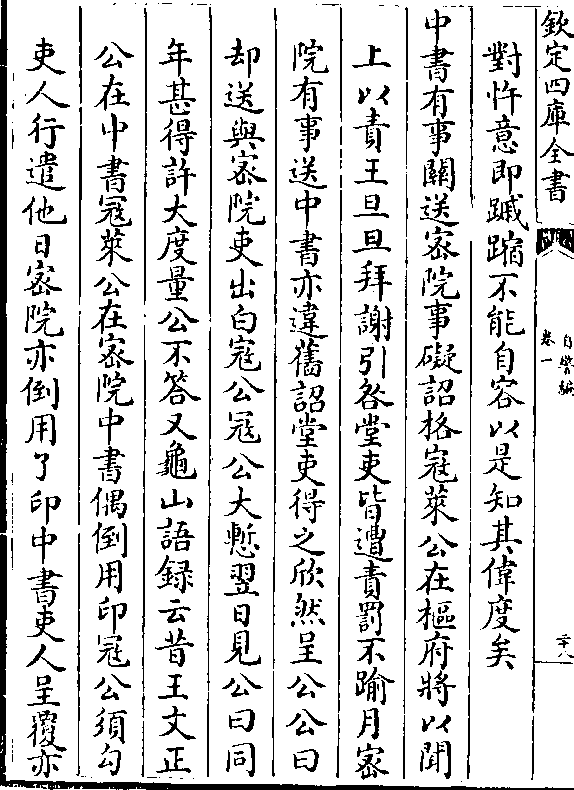 欽定四庫全書
自警編
卷一
二十八
對忤意即踧踖不能自容以是知其偉度矣
中書有事關送宻院事礙詔格寇萊公在樞府將以聞
上以責王旦旦拜謝引咎堂吏皆遭責罰不踰月宻
院有事送中書亦違舊詔堂吏得之欣然呈公公曰
却送與宻院吏出白寇公冦公大慙翌日見公曰同
年甚得許大度量公不答又龜山語録云昔王文正
公在中書冦萊公在宻院中書偶倒用印冦公須勾
吏人行遣他日宻院亦倒用了印中書吏人呈覆亦